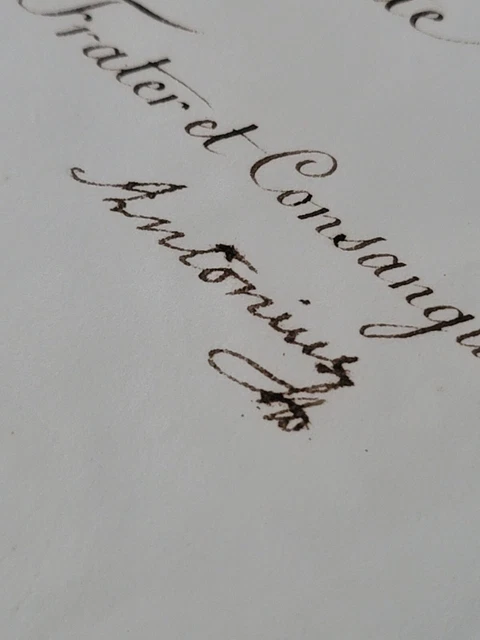 Frater et Consangu
Antonius